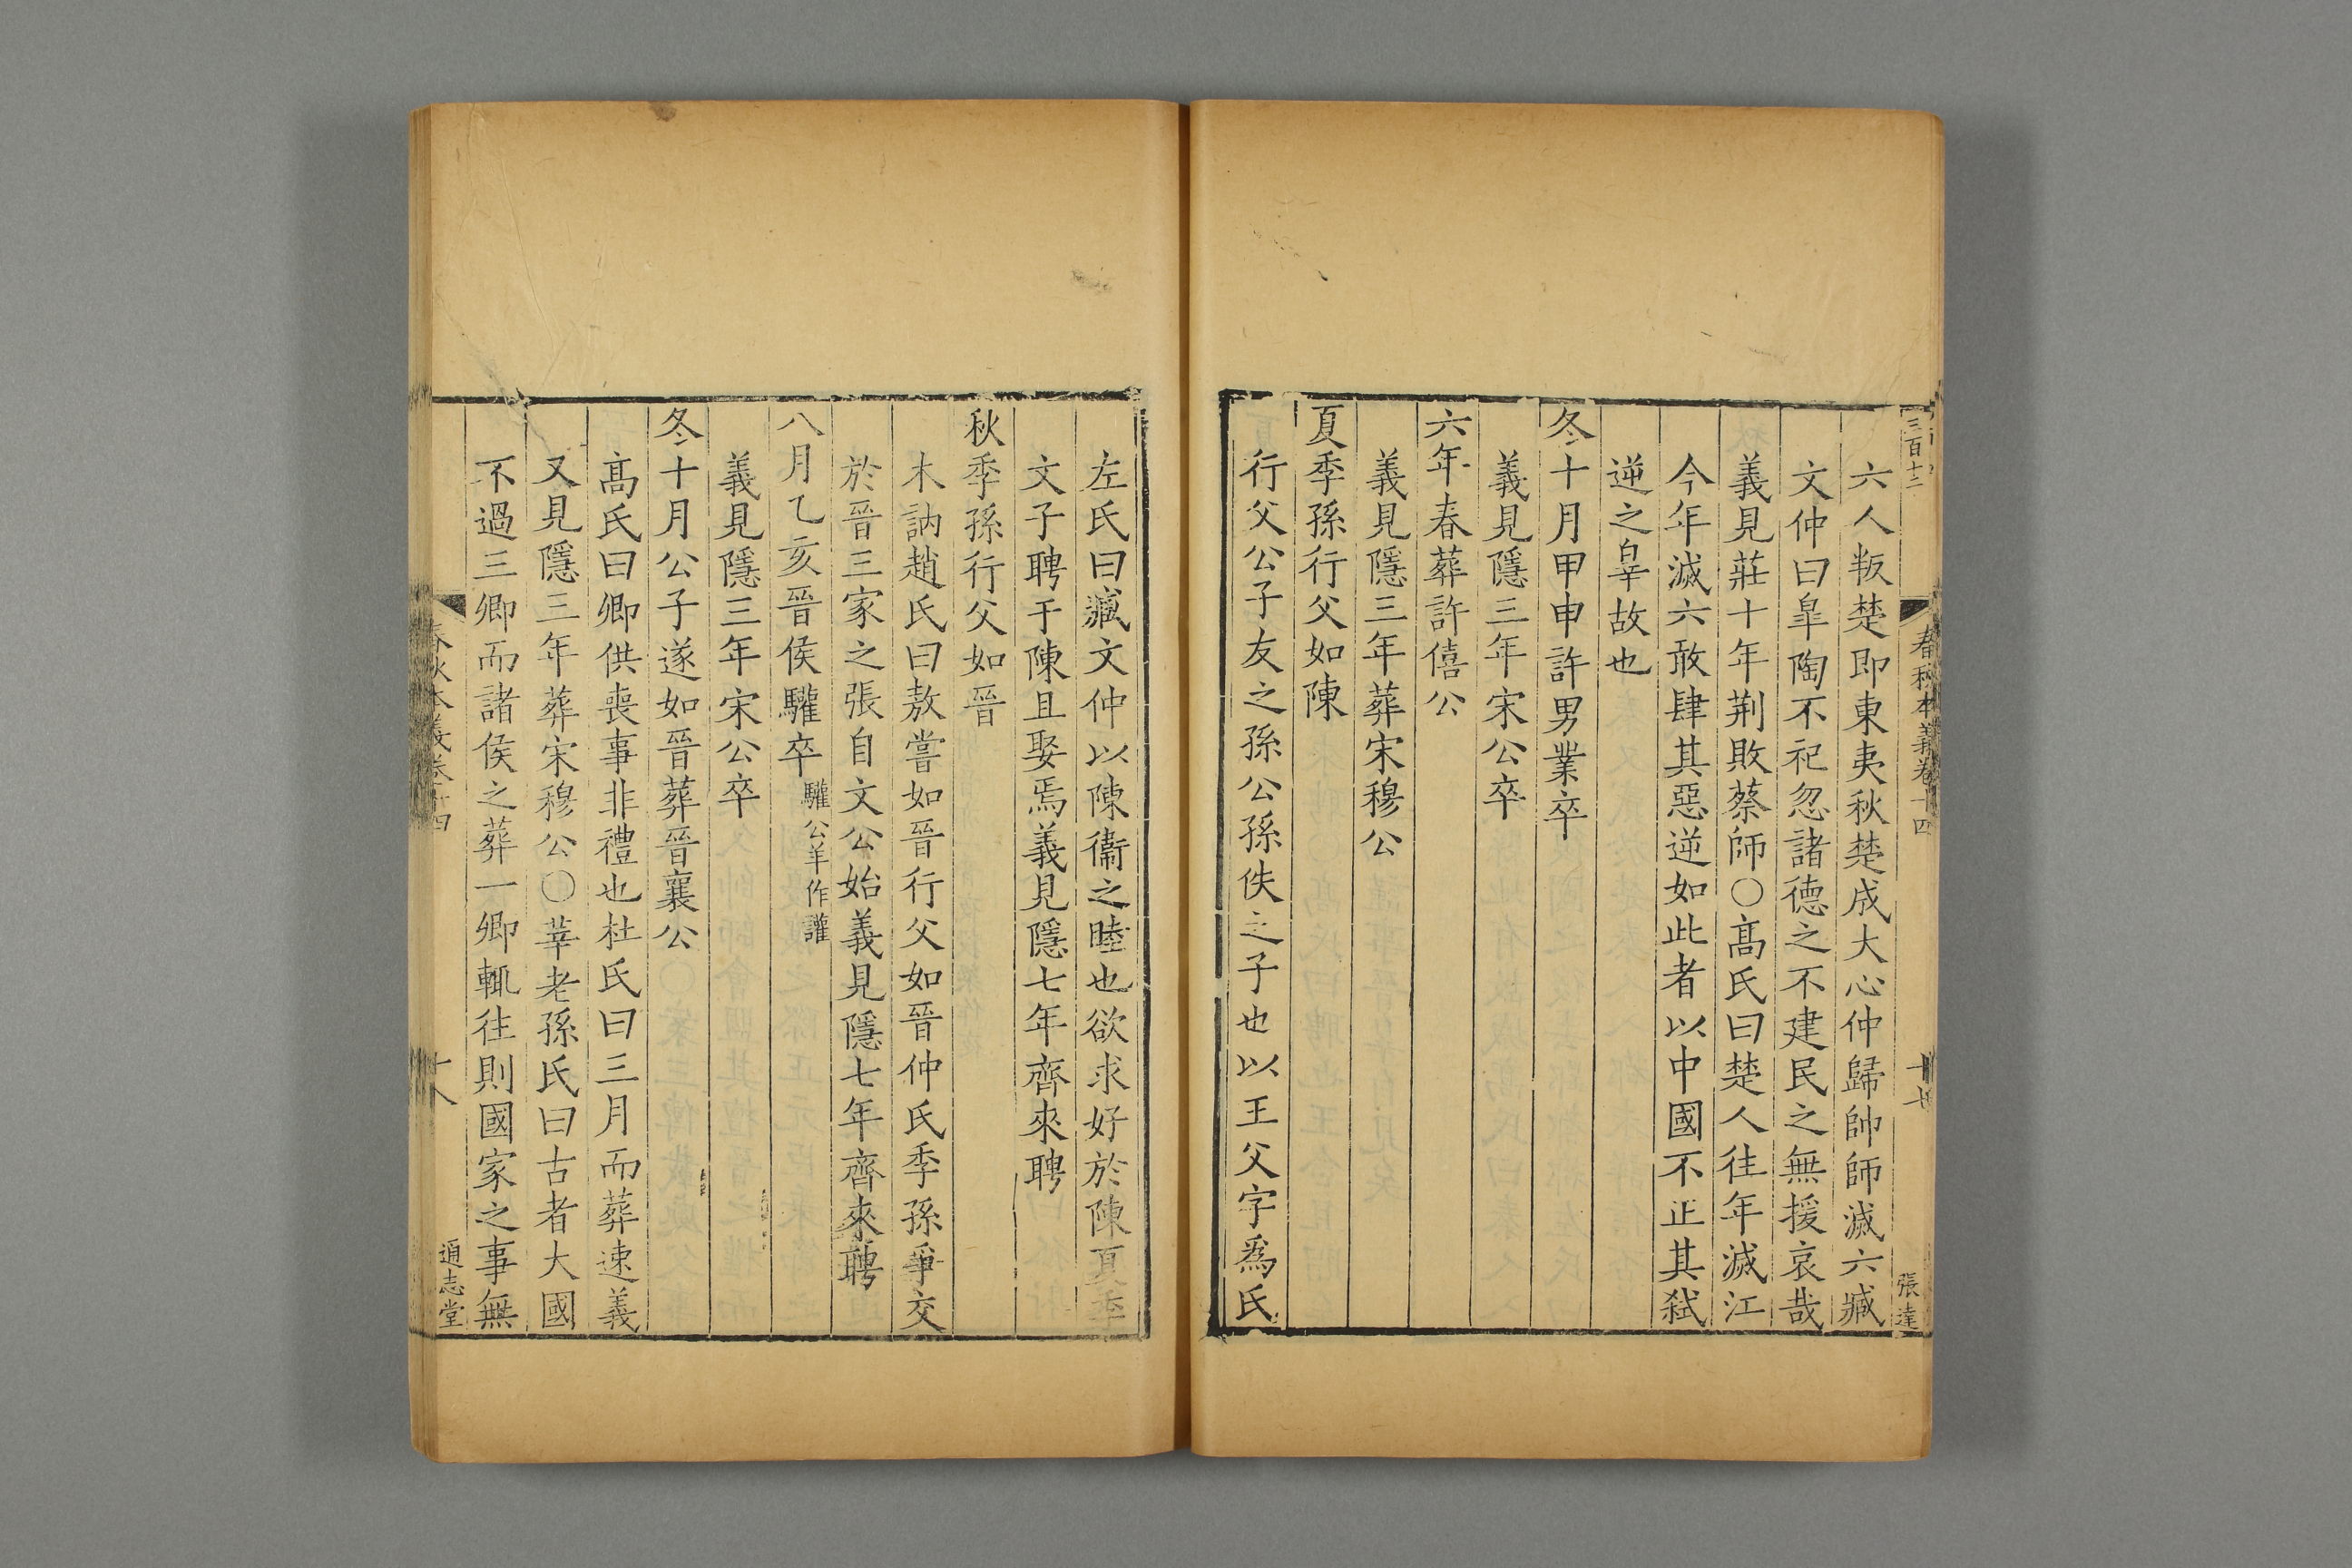 三百十二
春秋本義卷十四
十七
張達
六人叛楚即東夷秋楚成大心仲歸帥師滅六臧
文仲曰臯陶不祀忽諸德之不建民之無援哀哉
義見莊十年荆敗蔡師○髙氏曰楚人往年滅江
今年滅六敢肆其惡逆如此者以中國不正其弑
逆之辠故也
冬十月甲申許男業卒
義見隱三年宋公卒
六年春葬許僖公
義見隱三年葬宋穆公
夏季孫行父如陳
行父公子友之孫公孫佚之子也以王父字爲氏
左氏曰臧文仲以陳衞之睦也欲求好於陳夏季
文子聘于陳且娶焉義見隱七年齊來聘
秋季孫行父如晉
木訥趙氏曰敖嘗如晉行父如晉仲氏季孫爭交
於晉三家之張自文公始義見隱七年齊來聘
八月乙亥晉侯驩卒驩公羊作讙
義見隱三年宋公卒
冬十月公子遂如晉葬晉襄公
髙氏曰卿供喪事非禮也杜氏曰三月而葬速義
又見隱三年葬宋穆公○莘老孫氏曰古者大國
不過三卿而諸侯之葬一卿輒往則國家之事無
春秋本義卷十四
十八
通志堂